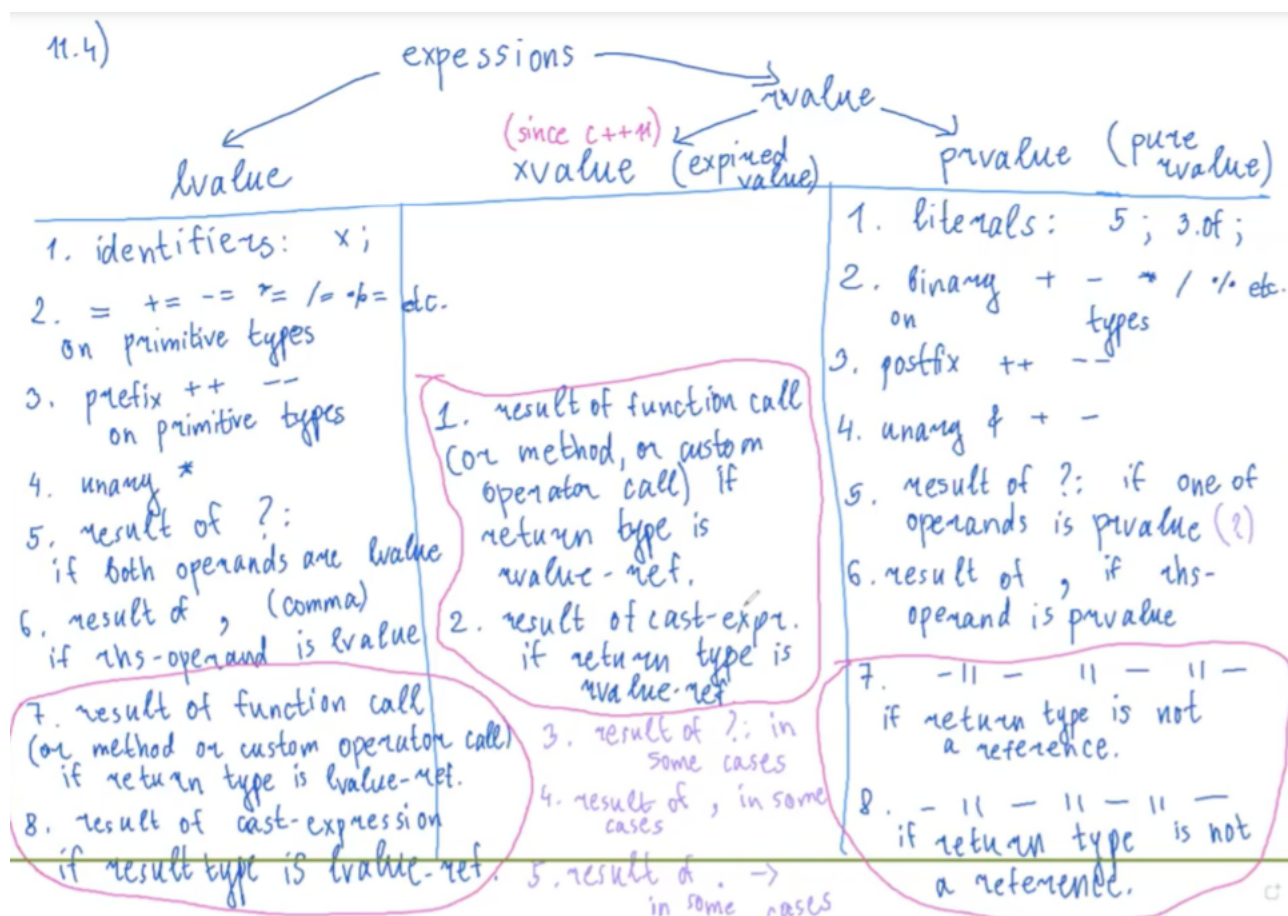 11.4)
expessions
rvalue
(since c++11)
lvalue
xvalue (expired value)
prvalue (pure rvalue)
1. identifiers: x;
2. = += -= *= /= %= etc.
on primitive types
3. prefix ++ --
on primitive types
4. unary *
5. result of ?:
if both operands are lvalue
6. result of , (comma)
if rhs-operand is lvalue
7. result of function call
(or method or custom operator call)
if return type is lvalue-ref.
8. result of cast-expression
if result type is lvalue-ref.
1. result of function call
(or method, or custom
operator call) if
return type is
rvalue-ref.
2. result of cast-expr.
if return type is
rvalue-ref
3. result of ?: in
some cases
4. result of , in some
cases
5. result of . ->
in some cases
1. literals: 5; 3.0f;
2. binary + - * / % etc.
on types
3. postfix ++ --
4. unary & + -
5. result of ?: if one of
operands is prvalue (?)
6. result of , if rhs-
operand is prvalue
7. -||- ||- ||-
if return type is not
a reference.
8. -||-||-||-
if return type is not
a reference.